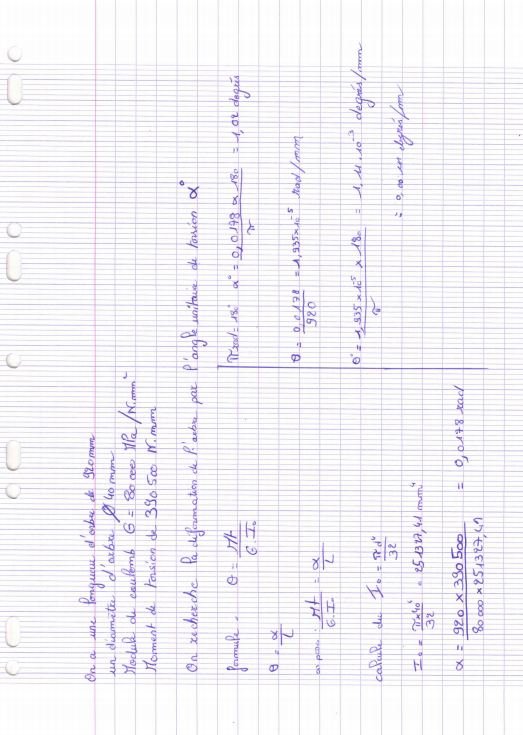 On a une longueur d'arbre de 920 mm
un diamètre d'arbre Ø 40 mm
Module de coulomb G = 80 000 MPa / N.mm²
Moment de torsion de 390 500 N.mm
On recherche la déformation de l'arbre par l'angle unitaire de torsion α°
formule - θ = Mt / G.I₀
θ = α / L
on pose : Mt / G.I₀ = α / L
calcule du I₀ = πd⁴ / 32
I₀ = π×40⁴ / 32 = 251327,41 mm⁴
α = 920 × 390 500 / 80 000 × 251 327,41 = 0,0178 rad
π rad = 180° α° = 0,0178 × 180 / π = 1,02 degrés
θ = 0,0178 / 920 = 1,935×10⁻⁵ rad/mm
θ° = 1,935×10⁻⁵ × 180 / π = 1,11.10⁻³ degrés/mm
= 0,00111 degrés/mm